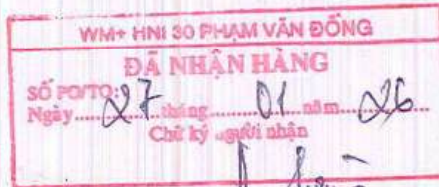 WM+ HNI 30 PHẠM VĂN ĐỒNG
ĐÃ NHẬN HÀNG
SỐ PO/TO:
Ngày 27 tháng 01 năm 26
Chữ ký người nhận